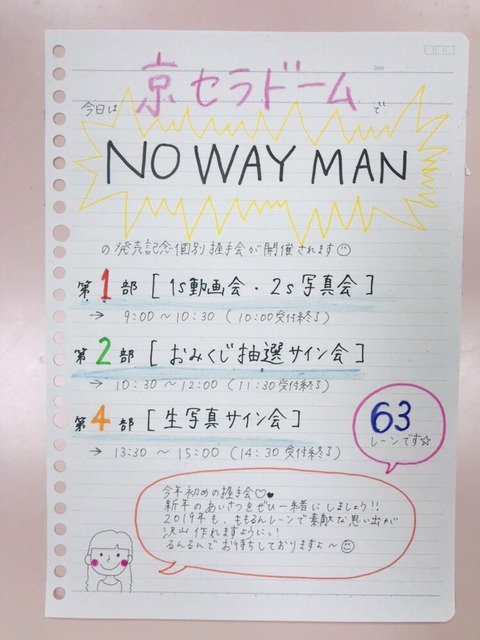 京セラドーム
今日は で
NO WAY MAN
の発売記念個別握手会が開催されます☺
第1部 [ 1s動画会・2s写真会 ]
→ 9:00 〜 10:30 ( 10:00受付終了 )
第2部 [ おみくじ抽選サイン会 ]
→ 10:30 〜 12:00 ( 11:30受付終了 )
第4部 [ 生写真サイン会 ]
→ 13:30 〜 15:00 ( 14:30受付終了 )
63
レーンです☆
今年初めの握手会♡♥
新年のあいさつをぜひ一緒にしましょう!!
2019年も、ももるんレーンで素敵な思い出が
沢山作れますようにっ!
るんるんでお待ちしておりますよ〜☺